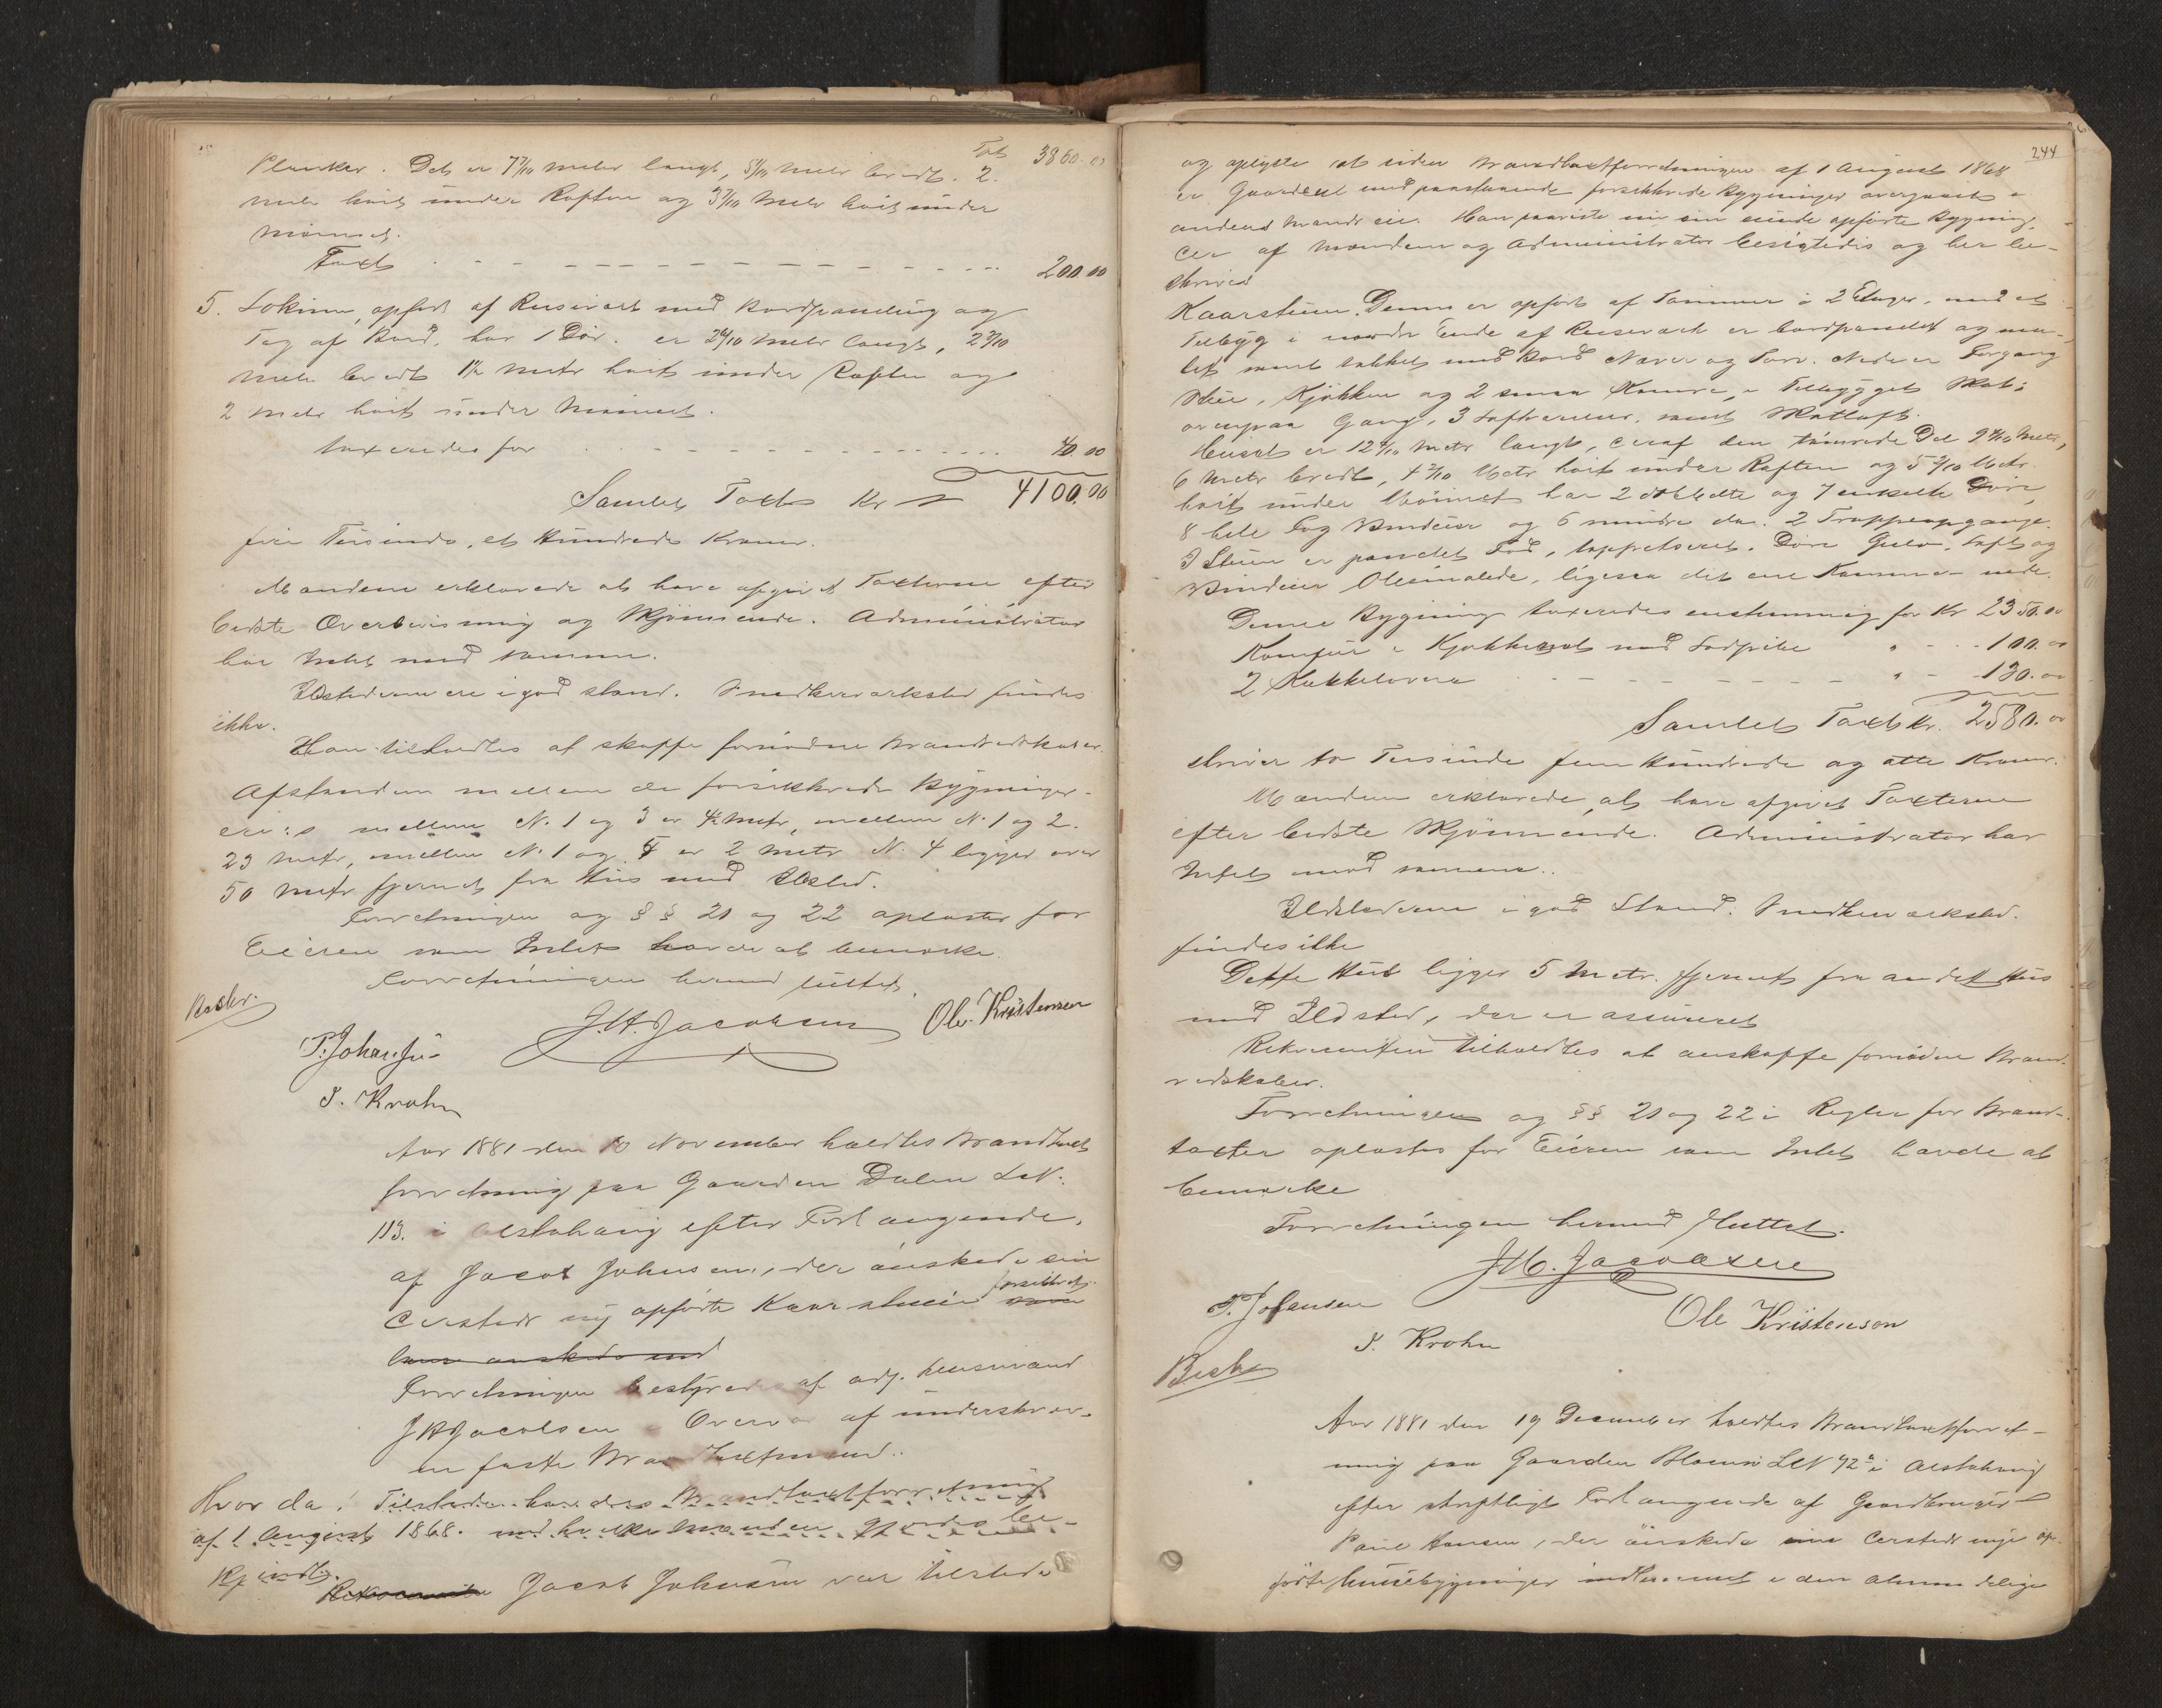 Tot 3860.00
Planker. Det er 7 7/10 meter langt, 5 1/10 meter bredt. 2
meter høit under Raften og 3 7/10 Meter høit under
Mønnet.
Taxt 200.00
5. Lokum, opført af Reisværk med Bordpanding og
Tag af Bord, har 1 Dør. er 2 4/10 Meter langt, 2 3/10
Meter bredt 1 1/2 Meter høit under Raften og
2 Meter høit under Mønnet.
taxeredes for 40.00
Samlet Taxt Kr 4100.00
fire Tusinde, et Hundrede Kroner.
Mændene erklærede at have afgivet Taxterne efter
bedste Overbevisning og Skjønnende. Administrator
har Intet mod samme.
Ildstederne ere i god stand. Snedkerværksted findes
ikke.
Han tilholdtes at skaffe fornødne Brandredskaber.
Afstanden mellem de forsikkrede Bygninger
ere: mellem No. 1 og 3 er 4 1/2 Metr, mellem No. 1 og 2.
23 Metr, mellem No. 1 og 5 er 2 Metr No. 4 ligger over
50 Metr fjernet fra Hus med Ildsted.
Forretningen og §§ 21 og 22 oplæstes for
Eieren som Intet havde at bemærke.
Forretningen hermed sluttet.
Beskr.
J.H. Jacobsen Ole Kristensen
P. Johansen
J. Krohn
Aar 1881 den 10 November holdtes Brandtaxt
forretning paa Gaarden Dalen LN.
113. i Alstahaug efter Forlangende,
af Jacob Johnsen, der ønskede sin
forsikkret
dersteds ny opførte Kaarstue som
han ønskede ind
Forretningen bestyredes af adj. Lensmand
JHJacobsen i Overvær af underskrev-
ne faste Brandtaxtmænd.
Hvor da: Tilstede havdes Brandtaxtforretning
af 1 August 1868. med hvilke Mændene gjordes be-
kjendt.
Rekvirenten Jacob Johnsen var tilstede
244
og oplyste at siden Brandtaxtforretningen af 1 August 1868
er Gaarden med paastaaende forsikkrede Bygninger overgaaet i
anden Mands eie. Han paaviste nu sin eiende opførte Bygning,
der af Mændene og Administrator besigtedes og her be-
skrives
Kaarstuen. Denne er opført af Tømmer i 2 Etager, med et
Tilbyg i nordre Ende af Reisværk er bordpandet og ma-
let samt tækket med Bord Næver og Torv. Nede er Forgang
Stue, Kjøkken og 2 smaa Kamre, i Tilbygget Skot.
ovenpaa Gang, 3 Loftværelser, samt Skotloft.
Huset er 12 4/10 Metr langt, deraf den tømrede Del 9 4/10 Metr,
6 Metr bredt, 4 2/10 Metr høit under Raften og 5 9/10 Metr
høit under Mønnet har 2 dobbelte og 7 enkelte Døre,
8 hele Fag Vinduer og 6 mindre do. 2 Trappeopgange.
I Stuen er pandet Fod, tappetseret. Døre Gulv, Loft og
Vinduer Oliemalede, ligesaa det ene Kammer nede.
Denne Bygning taxeredes enstemmig for Kr 2350.00
Komfur i Kjøkkenet med Jordpibe " 100.00
2 Kakkelovne " 130.00
Samlet Taxt Kr. 2580.00
skriver to Tusinde fem Hundrede og otti Kroner.
Mændene erklærede, at have afgivet Taxterne
efter bedste Skjønnende. Administrator har
Intet mod samme.
Ildstederne i god Stand. Snedkerværksted
findes ikke
Dette Hus ligger 5 Metr. fjernet fra andet Hus
med Ildsted, der er assureret
Rekvirenten tilholdtes at anskaffe fornødne Brand-
redskaber.
Forretningen og §§ 21 og 22 i Regler for Brand-
taxter oplæstes for Eieren som Intet havde at
bemærke
Forretningen hermed sluttet.
J.H. Jacobsen
P. Johansen
Ole Kristenson
J. Krohn
Beskr
Aar 1881 den 19 December holdtes Brandtaxtforret-
ning paa Gaarden Blomsø LN 92a i Alstahaug
efter skriftligt Forlangende af Gaardbruger
Paul Hansen, der ønskede sine dersteds nye op-
førte Huusebygninger indlemmet i den almindelige